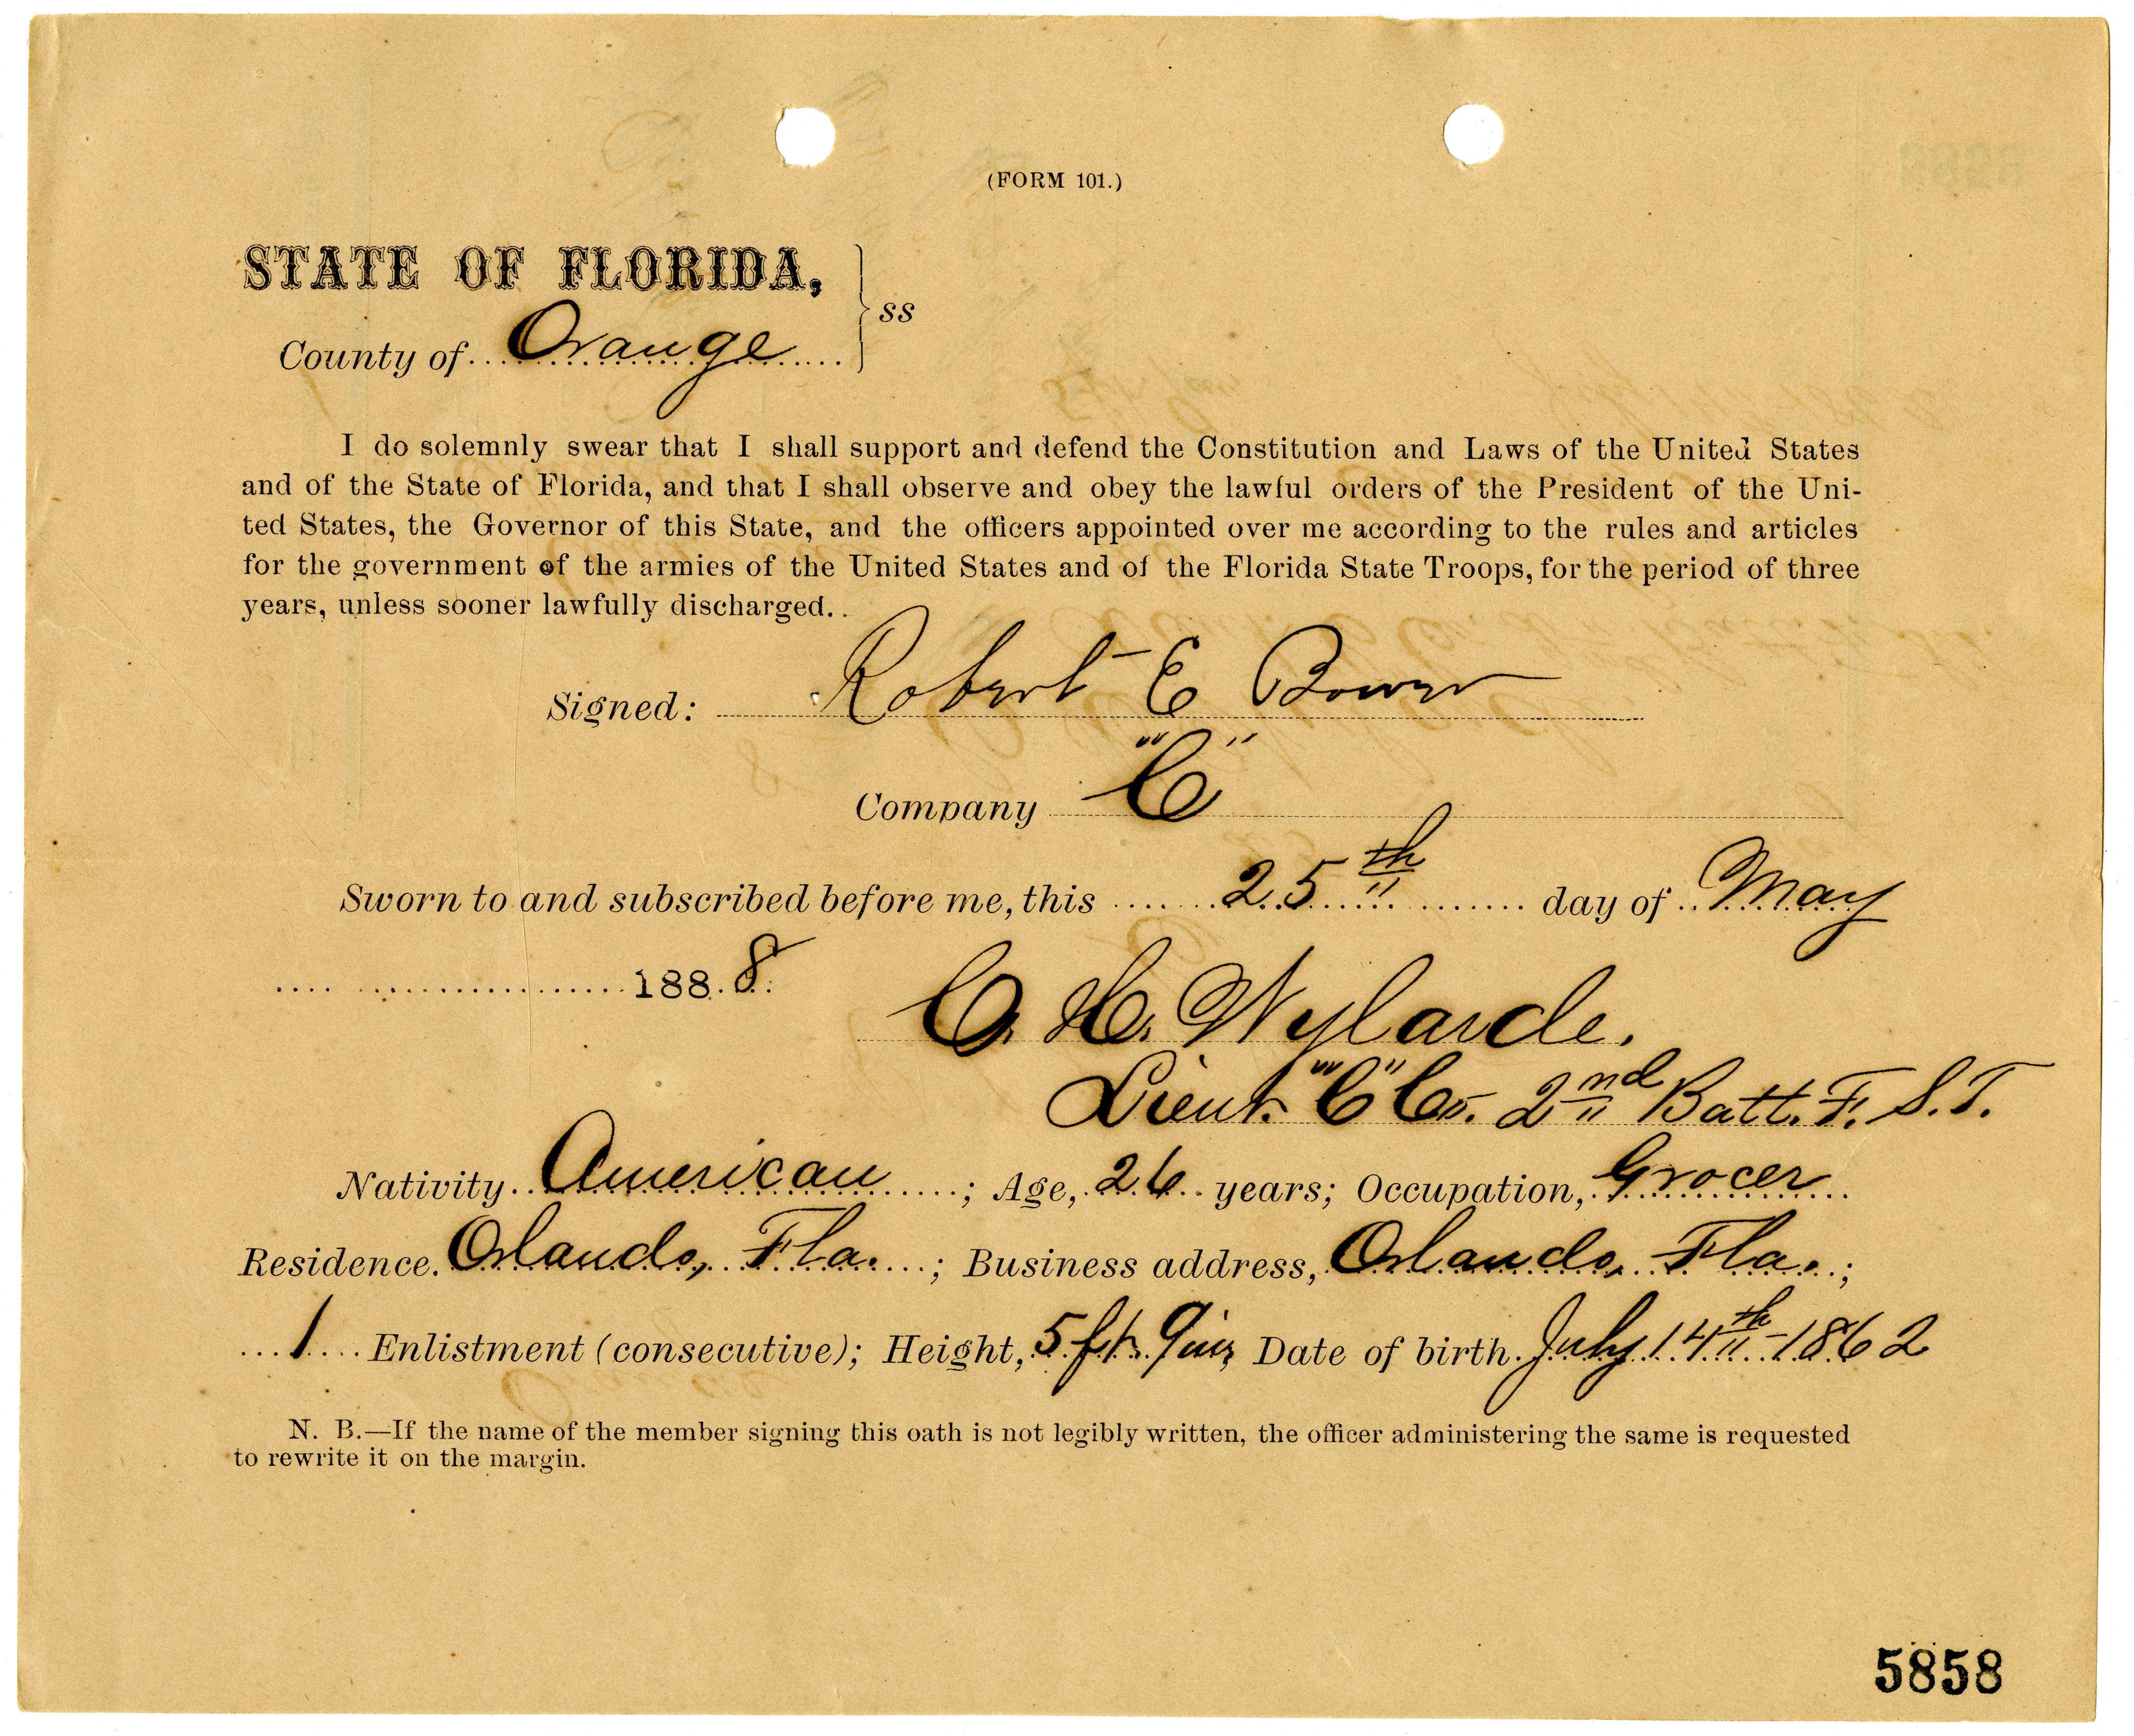 (FORM 101.)
STATE OF FLORIDA,
ss
County of Orange
I do solemnly swear that I shall support and defend the Constitution and Laws of the United States
and of the State of Florida, and that I shall observe and obey the lawful orders of the President of the Uni-
ted States, the Governor of this State, and the officers appointed over me according to the rules and articles
for the government of the armies of the United States and of the Florida State Troops, for the period of three
years, unless sooner lawfully discharged.
Signed: Robert E Bower
Company "C"
Sworn to and subscribed before me, this 25th day of May
1888.
C. H. Wylarde.
Lieut. "C" Co. 2nd Batt. F. S. T.
Nativity American; Age, 26 years; Occupation, Grocer
Residence. Orlando, Fla.; Business address, Orlando, Fla.;
1 Enlistment (consecutive); Height, 5 ft. 9 ins, Date of birth. July 14th-1862
N. B.—If the name of the member signing this oath is not legibly written, the officer administering the same is requested
to rewrite it on the margin.
5858